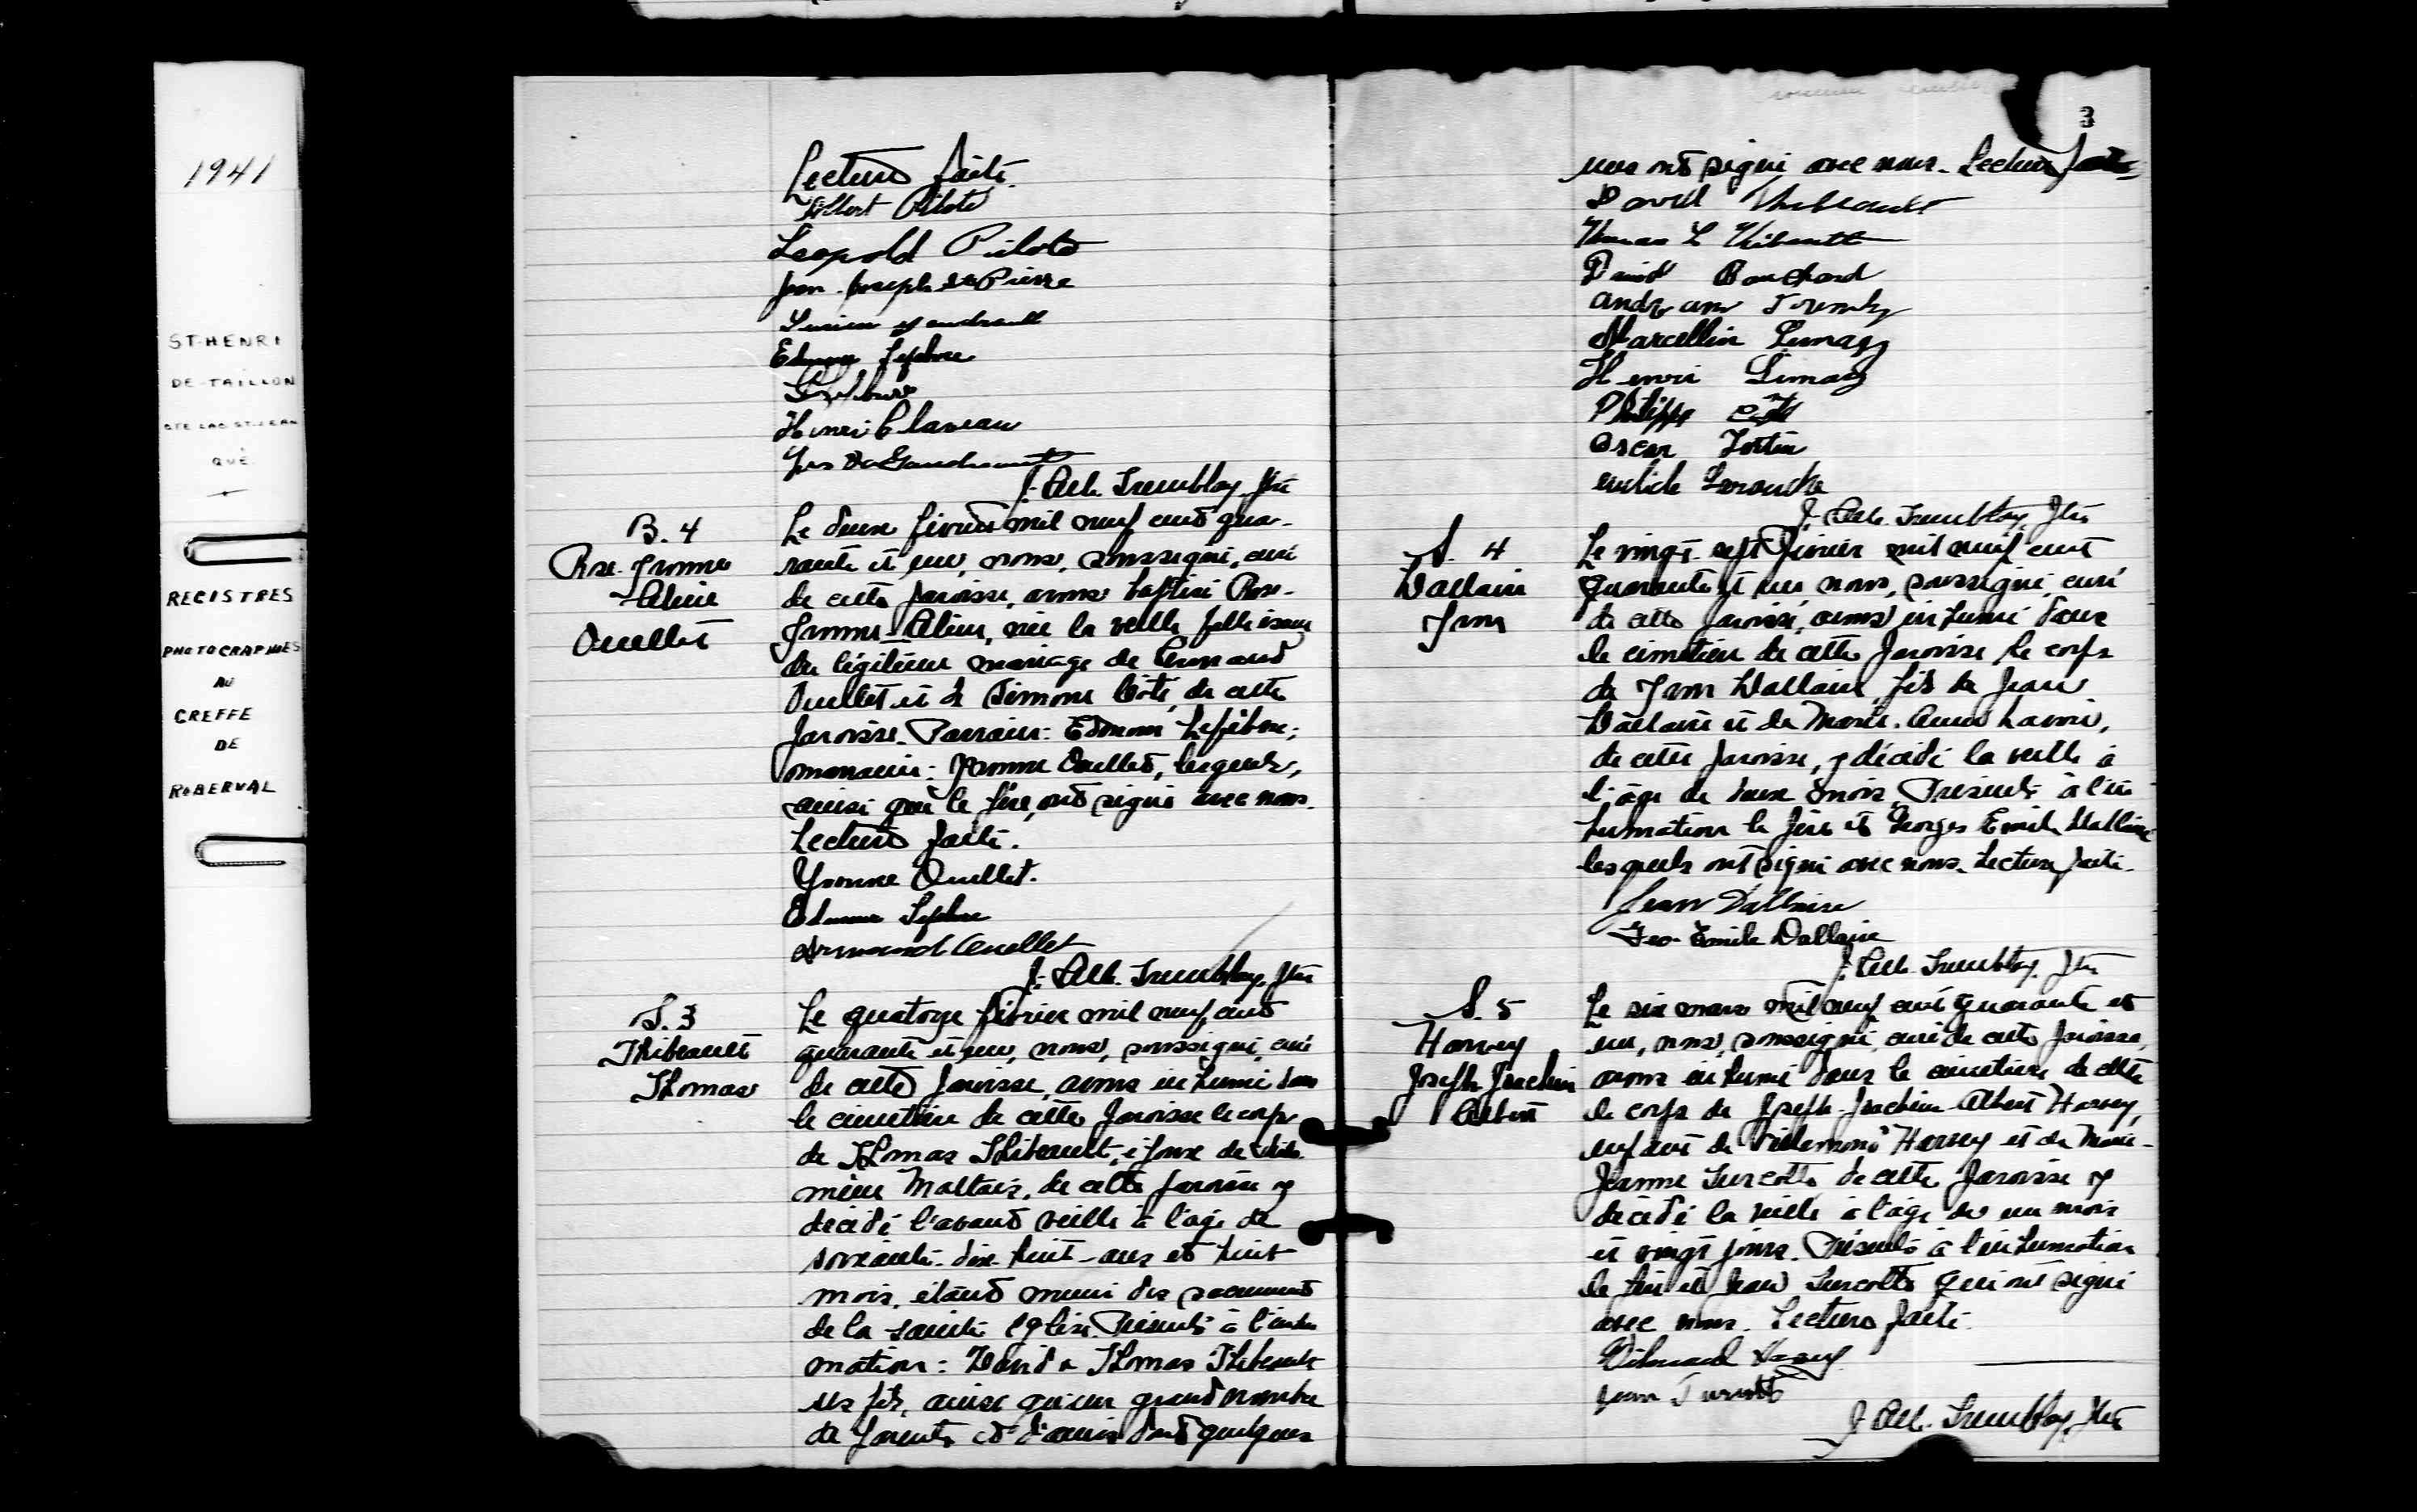 1941
ST-HENRI
DE-TAILLON
CTE LAC ST-JEAN
QUÉ.
REGISTRES
PHOTOGRAPHIÉS
AU
GREFFE
DE
ROBERVAL
Lecture faite.
Albert Pilote
Leopold Pilote
Jean-Joseph St Pierre
Lucien Gaudreault
Edmour Lefebvre
Henri Claveau
J. Alb. Tremblay, Ptre
B. 4
Rose-Yvonne
Aline
Ouellet
Le deux février mil neuf cent qua-
rante et un, nous, soussigné, curé
de cette paroisse, avons baptisé Rose-
Yvonne-Aline, née la veille, fille issue
du légitime mariage de Armand
Ouellet et de Simone Côté, de cette
paroisse. Parrain: Edmour Lefebvre;
marraine: Yvonne Ouellet, lesquels,
ainsi que le père, ont signé avec nous.
Lecture faite.
Yvonne Ouellet.
Edmour Lefebvre
Armand Ouellet
J. Alb. Tremblay, Ptre
S. 3
Thibeault
Thomas
Le quatorze février mil neuf cent
quarante et un, nous, soussigné, curé
de cette paroisse, avons inhumé dans
le cimetière de cette paroisse le corps
de Thomas Thibeault, époux de
Maltais, de cette paroisse y
décédé l'avant veille à l'âge de
soixante-dix-huit ans et huit
mois, étant muni des sacrements
de la sainte Eglise. Présents à l'inhu
mation: David & Thomas Thibeault
ses fils, ainsi qu'un grand nombre
de parents et d'amis dont quelques
3
uns ont signé avec nous. Lecture faite
David Thibeault
Thomas L Thibeault
David Bouchard
Tremblay
Marcellin Lemay
Henri Lemay
Philippe Côté
Oscar Fortin
Larouche
J. Alb. Tremblay, Ptre
S. 4
Dallaire
Yvon
Le vingt-sept février mil neuf cent
quarante et un nous, soussigné, curé
de cette paroisse, avons inhumé dans
le cimetière de cette paroisse le corps
de Yvon Dallaire, fils de Jean
Dallaire et de Marie-Anna Lavoie,
de cette paroisse, y décédé la veille à
l'âge de deux mois. Présents à l'in
humation le père et Georges Emile Dallaire
lesquels ont signé avec nous. Lecture faite.
Jean Dallaire
Geo-Emile Dallaire
J. Alb. Tremblay, Ptre
S. 5
Harvey
Joseph Joachim
Albert
Le six mars mil neuf cent quarante et
un, nous, soussigné, curé de cette paroisse,
avons inhumé dans le cimetière de cette
le corps de Joseph-Joachim-Albert Harvey,
enfant de Villemond Harvey et de Marie-
Jeanne Turcotte de cette paroisse y
décédé la veille à l'âge de un mois
et vingt jours. Présents à l'inhumation
le père et Jean Turcotte qui ont signé
avec nous. Lecture faite.
Harvey
Jean Turcotte
J. Alb. Tremblay, Ptre